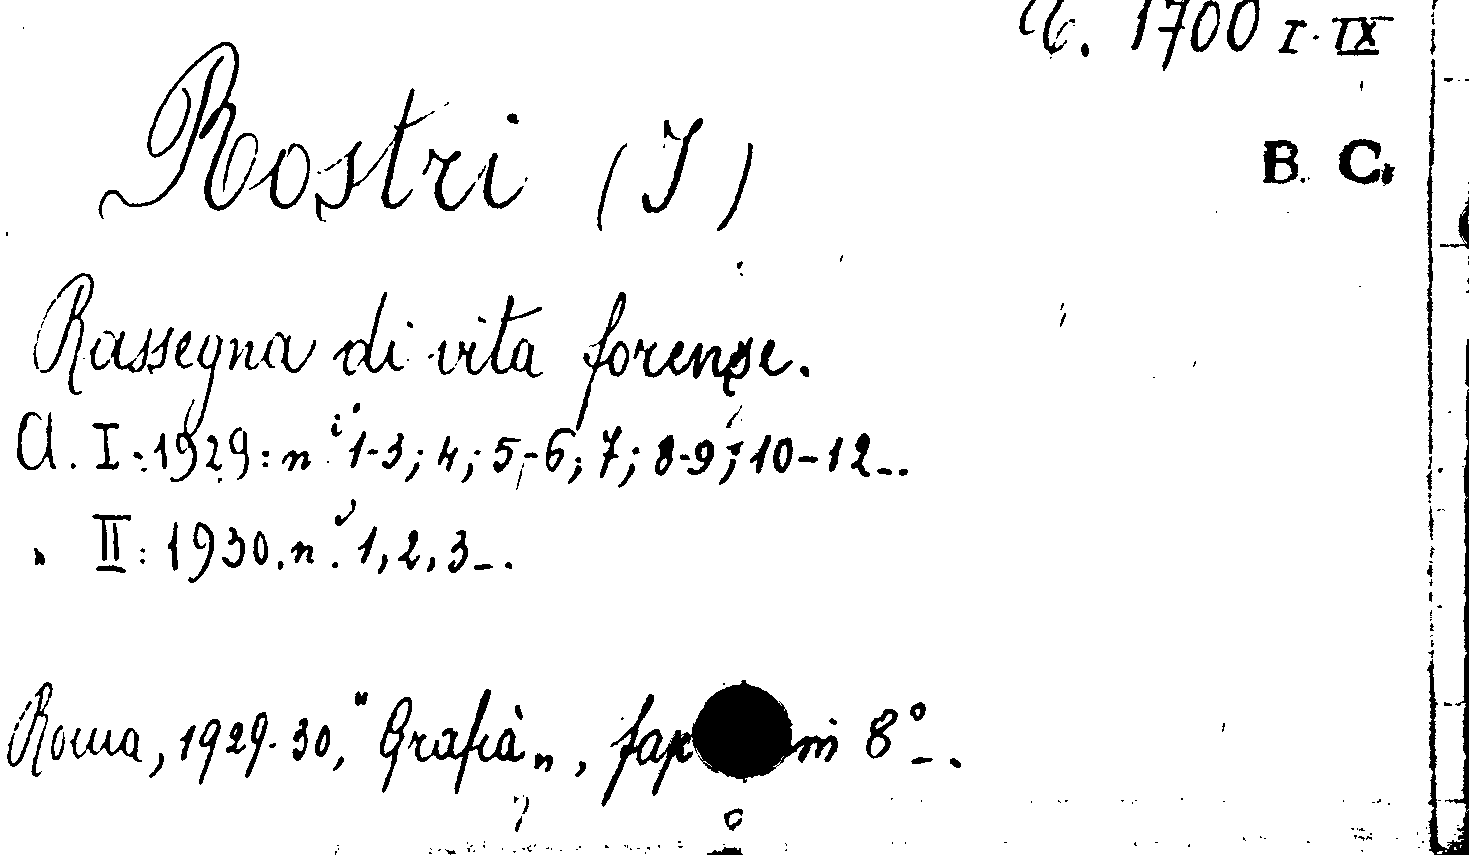 1700 I-IX
Rostri (I)
B. C.
Rassegna di vita forense.
A. I: 1929: n.i 1-3; 4; 5-6; 7; 8-9; 10-12_.
" II: 1930. n.i 1, 2, 3_.
Roma, 1929-30, "Grafià", in 8°_.